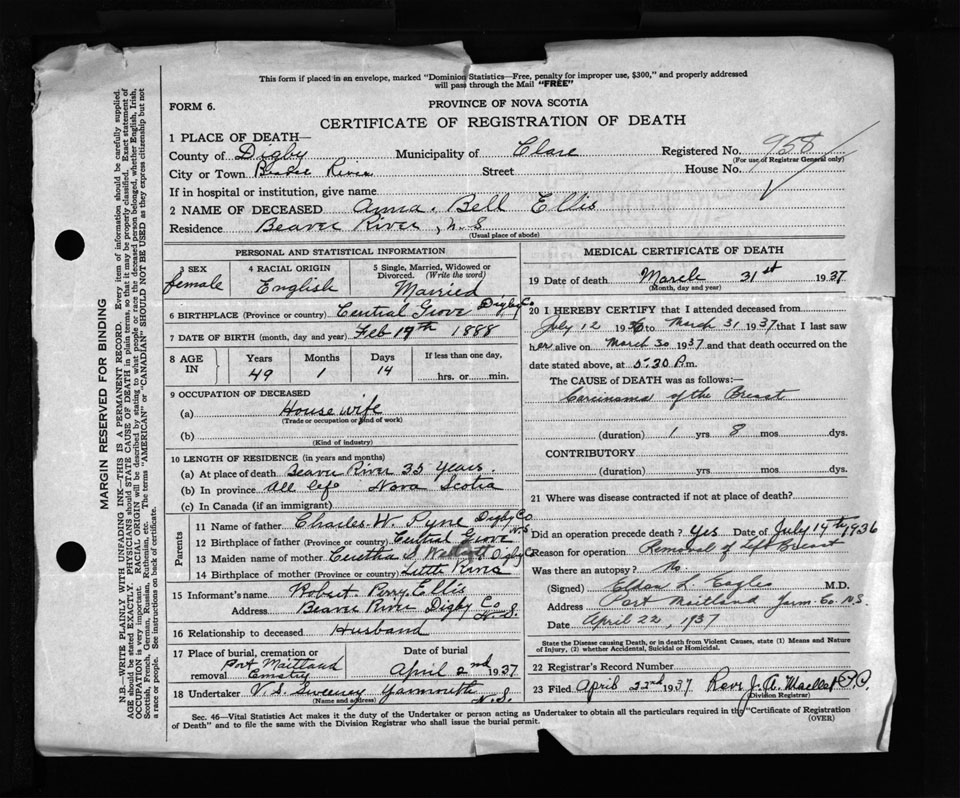 This form if placed in an envelope, marked "Dominion Statistics—Free, penalty for improper use, $300," and properly addressed
will pass through the Mail "FREE"
FORM 6.
PROVINCE OF NOVA SCOTIA
CERTIFICATE OF REGISTRATION OF DEATH
1 PLACE OF DEATH—
County of Digby Municipality of Clare Registered No. 958
(For use of Registrar General only)
City or Town River Street House No.
If in hospital or institution, give name
2 NAME OF DECEASED Anna Bell Ellis
Residence Beaver River, N.S
(Usual place of abode)
PERSONAL AND STATISTICAL INFORMATION
3 SEX 4 RACIAL ORIGIN 5 Single, Married, Widowed or
Divorced. (Write the word)
female English Married
6 BIRTHPLACE (Province or country) Central Grove Digby Co
7 DATE OF BIRTH (month, day and year) Feb 17th 1888
8 AGE IN Years Months Days If less than one day,
49 1 14 hrs. or min.
9 OCCUPATION OF DECEASED
(a) House wife
(Trade or occupation or kind of work)
(b)
(Kind of industry)
10 LENGTH OF RESIDENCE (in years and months)
(a) At place of death Beaver River 35 Years
(b) In province All life Nova Scotia
(c) In Canada (if an immigrant)
Parents
11 Name of father Charles W. Pyne Digby Co
N.S.
12 Birthplace of father (Province or country) Central Grove
13 Maiden name of mother S. Digby Co
14 Birthplace of mother (Province or country) Little River
15 Informant's name Robert Perry Ellis
Address Beaver River Digby Co
N.S.
16 Relationship to deceased Husband
17 Place of burial, cremation or
removal Port Maitland
Date of burial
April 2nd 1937
18 Undertaker V. S. Sweeney Yarmouth
N.S.
(Name and address)
MEDICAL CERTIFICATE OF DEATH
19 Date of death March 31st 1937
(Month, day and year)
20 I HEREBY CERTIFY that I attended deceased from
July 12 1936 to March 31 1937 that I last saw
her alive on March 30 1937 and that death occurred on the
date stated above, at 5.30 Am.
The CAUSE of DEATH was as follows:—
Carcinoma of the Breast
(duration) 1 yrs 8 mos. dys.
CONTRIBUTORY
(duration) yrs. mos. dys.
21 Where was disease contracted if not at place of death?
Did an operation precede death? Yes Date of July 14th 1936
Reason for operation Removal of Left Breast
Was there an autopsy? No
(Signed) Eldon L. Eagles M.D.
Address Port Maitland Yarm. Co. N.S.
Date April 22, 1937
State the Disease causing Death, or in death from Violent Causes, state (1) Means and Nature
of Injury, (2) whether Accidental, Suicidal or Homicidal.
22 Registrar's Record Number
23 Filed April 22nd 1937 Rev. J. A.
(Division Registrar)
Sec. 46—Vital Statistics Act makes it the duty of the Undertaker or person acting as Undertaker to obtain all the particulars required in the "Certificate of Registration
of Death" and to file the same with the Division Registrar who shall issue the burial permit.
(OVER)
MARGIN RESERVED FOR BINDING
N.B.—WRITE PLAINLY WITH UNFADING INK—THIS IS A PERMANENT RECORD. Every item of information should be carefully supplied.
AGE should be stated EXACTLY. PHYSICIANS should STATE CAUSE OF DEATH in plain terms, so that it may be properly classified. Exact statement of
OCCUPATION is very important. RACIAL ORIGIN will be described by stating to what people or race the deceased person belonged, whether English, Irish,
Scottish, French, German, Russian, Ruthenian, etc. The terms "AMERICAN" or "CANADIAN" SHOULD NOT BE USED as they express citizenship but not
a race or people. See instructions on back of certificate.